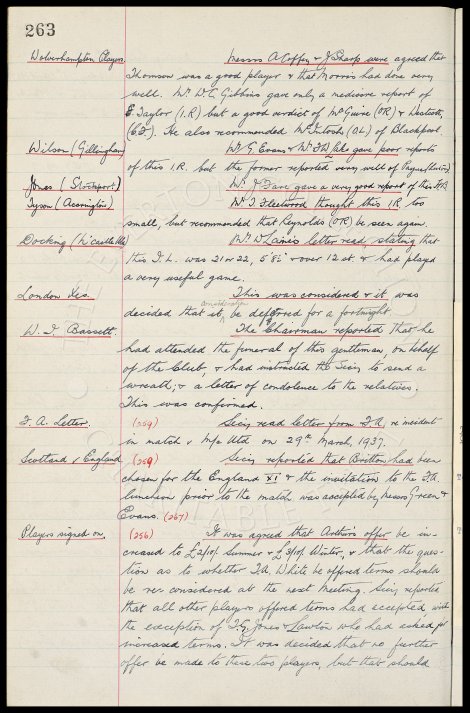 263
Wolverhampton Players. Messrs A Coffey & J Sharp were agreed that
Thomson was a good player & that Morris had done very
well. Mr. W.C. Gibbins gave only a mediocre report of
E. Taylor (I.R) but a good verdict of McGuire (OR) &
(C.F.). He also recommended McIntosh (O.L) of Blackpool.
Wilson (Gillingham) Mr. G Evans & Mr. gave poor reports
of this I.R. but the former reported very well of
Jones (Stockport) Mr. J Dave gave a very good report of this
Tyson (Accrington) Mr. J Fleetwood thought this I.R. too
small, but recommended that Reynolds (OR) be seen again.
Docking (N'castle Utd) Mr. W Laines letter read, stating that
this I.L. was 21 or 22, 5'8½" & over 12 st. & had played
a very useful game.
London Xes. This was considered & it was
decided that it, consideration be deferred for a fortnight
W. I Bassett. The Chairman reported that he
had attended the funeral of this gentleman, on behalf
of the Club, & had instructed the Secy to send a
wreath, & a letter of condolence to the relatives.
This was confirmed.
F. A. Letter. (259) Secy read letter from F.A. re incident
in match v M/c Utd on 29th March, 1937.
Scotland v England (259) Secy reported that Britton had been
chosen for the England XI & the invitation to the F.A.
luncheon prior to the match was accepted by Messrs Green &
Evans. (267)
Players signed on. (256) It was agreed that Arthurs offer be in-
creased to £2/10/- Summer & £3/10/- Winter, & that the ques-
tion as to whether J.A. White be offered terms should
be re-considered at the next meeting. Secy reported
that all other players offered terms had accepted with
the exception of T.G. Jones & Lawton who had asked for
increased terms. It was decided that no further
offer be made to these two players, but that should